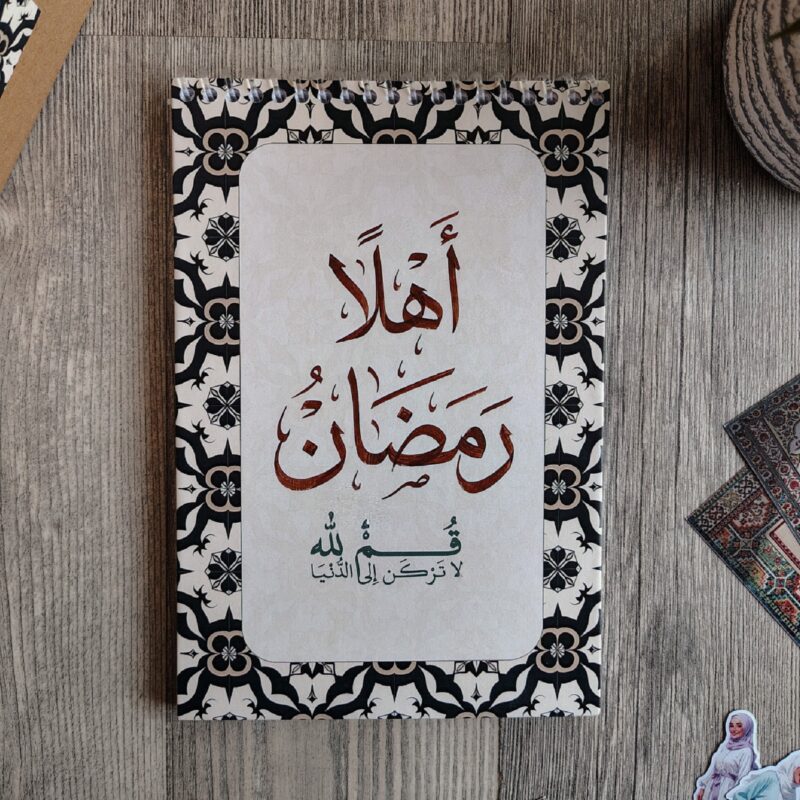 أَهْلًا
رَمَضَانُ
قُمْ لله
لا تَرْكَن إلى الدُّنْيَا